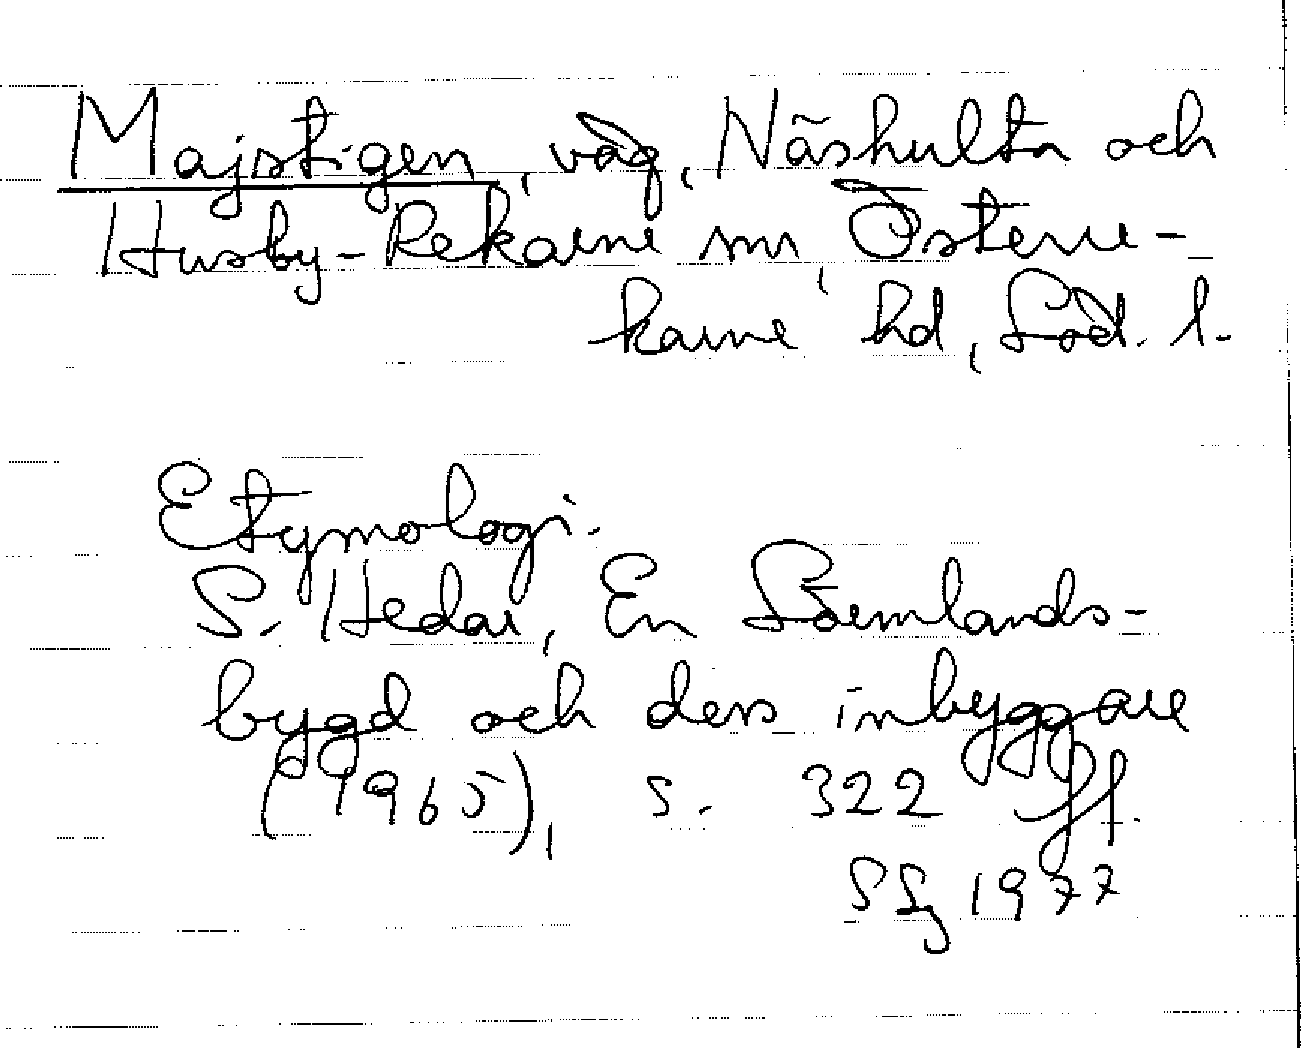 Majstigen, väg, Näshulta och
Husby-Rekarne snr, Österre-
karne hd, Söd. l.
Etymologi.
S. Hedar, En Sörmlands-
bygd och dess inbyggare
(1965), s. 322 ff.
SLj 1977